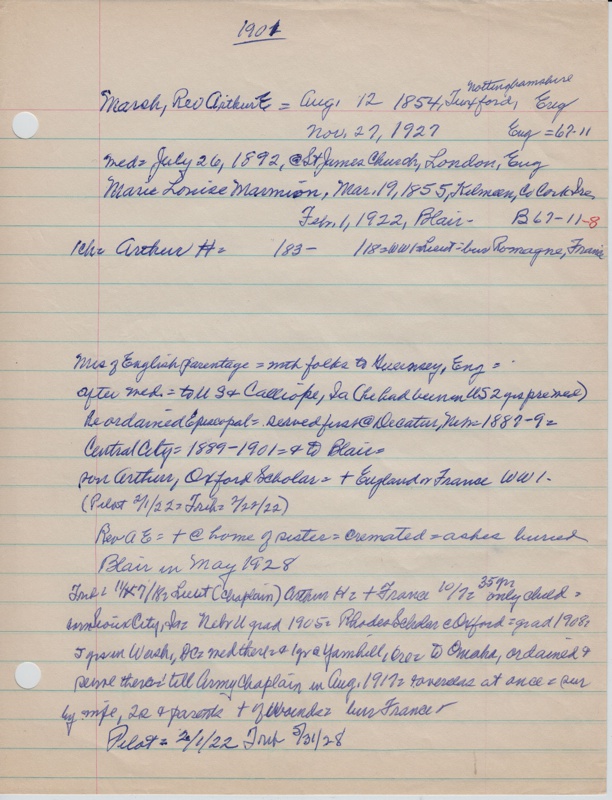 1901
Nottinghamshire
Marsh, Rev Arthur E = Aug. 12 1854, Tuxford, Eng
Nov. 27, 1927 Eng = 67-11
med = July 26, 1892, @ St. James Church, London, Eng
Marie Louise Marmion, Mar. 19, 1855, Co Cork Ire
Feb. 1, 1922, Blair - B 67-11-8
1ch = Arthur H = 183- /18 = WW1 = Lieut = bur Romagne, France
Mrs of English parentage = with folks to Guernsey, Eng =
after med. = to U S & Calliope, Ia (he had been in US 2 yrs pre med)
Re ordained Episcopal = served first @ Decatur, Neb = 1887-9 =
Central City = 1889-1901 = & to Blair =
son Arthur, Oxford Scholar = + England or France WW1 -
(Pilot 2/1/22 = Trib = 2/22/22)
Rev A E = + @ home of sister = cremated = ashes buried
Blair in May 1928
Trib = /18 = Lieut (Chaplain) Arthur H = + France 10/ 35 yr only child =
Sioux City, Ia = Nebr U grad 1905 = Rhodes Scholar @ Oxford = grad 1908 =
yrs in Wash, DC = med there = & 1 yr @ Yamhill, Ore = to Omaha, ordained &
serve there = till Army Chaplain in Aug. 1917 = overseas at once = sur
by wife, 2s & parents + of Wounds = bur France -
Pilot = 2/1/22 Trib 5/31/28